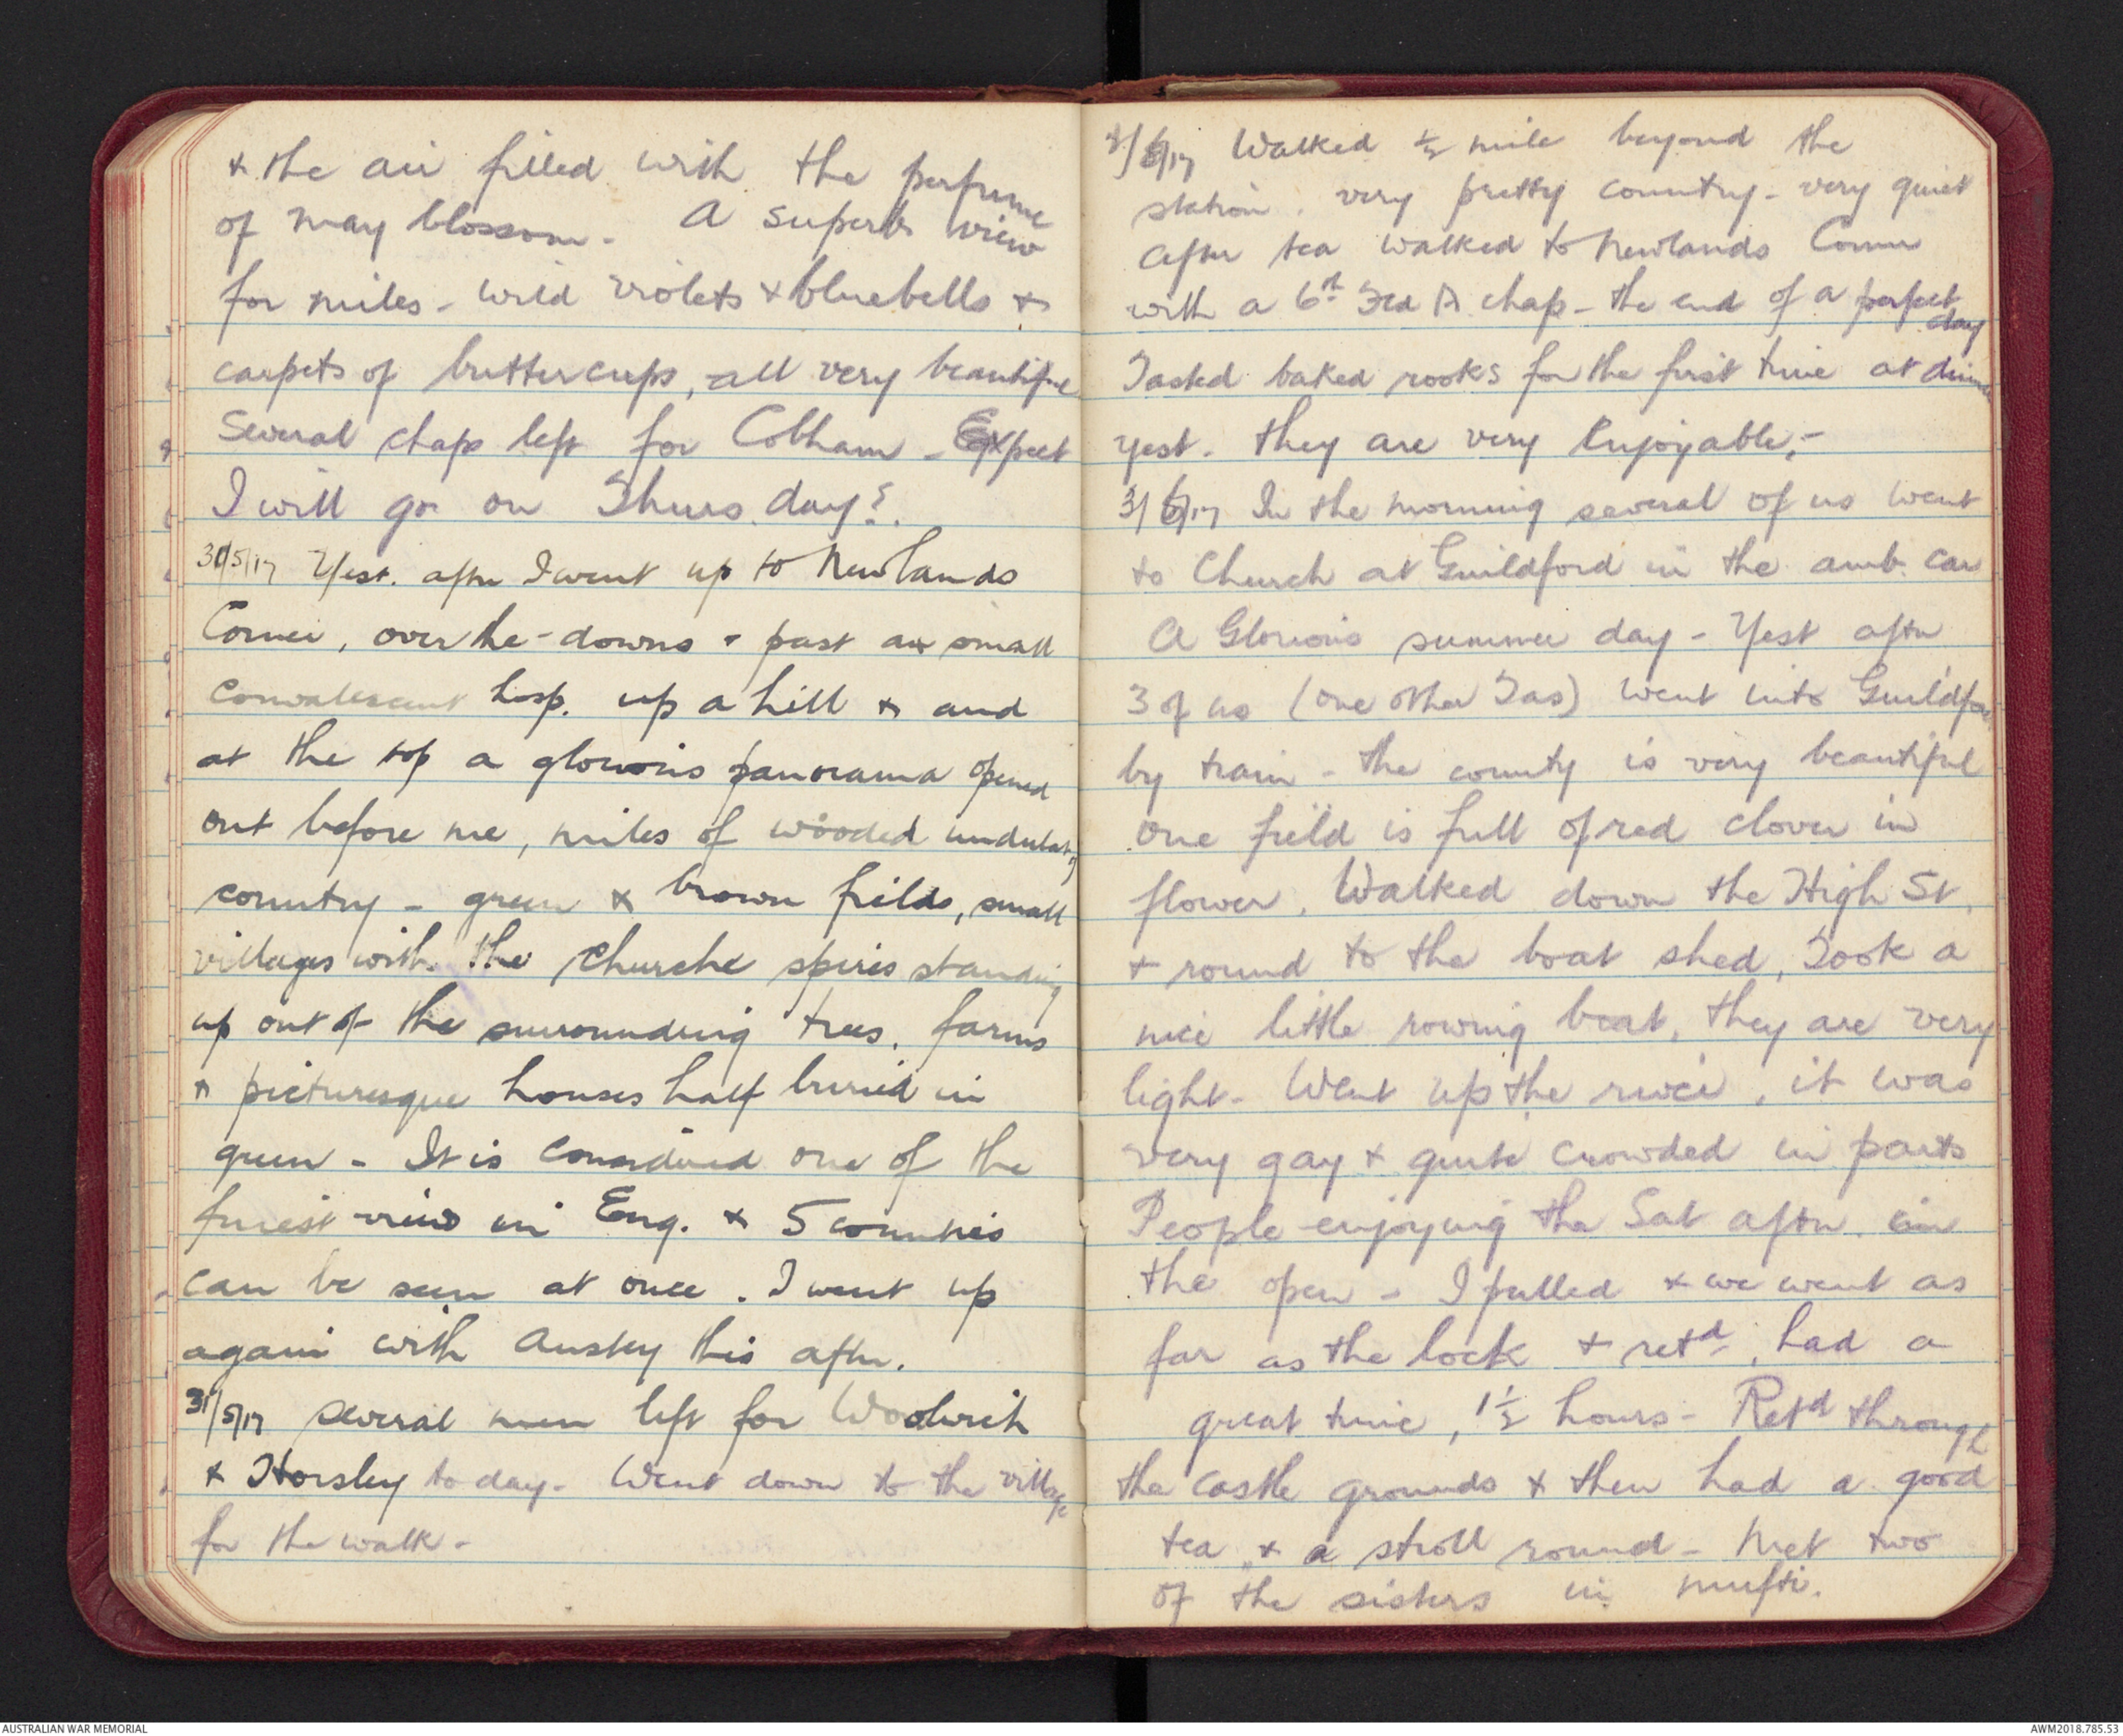 + the air filled with the perfume
of may blossom - A superb view
for miles - wild violets + bluebells +
carpets of buttercups, all very beautiful
Several chaps left for Cobham - Expect
I will go on Thurs. day?.
30/5/17 Yest. aftn I went up to Newlands
Corner, over the downs + past a small
convalescent hosp. up a hill + and
at the top a glorious panorama opened
out before me, miles of wooded undulatg
country - green + brown fields, small
villages with the churche spires standing
up out of the surrounding trees, farms
+ picturesque houses half buried in
green - It is considered one of the
finest views in Eng. + 5 counties
can be seen at once. I went up
again with Anstey this aftn.
31/5/17 several men left for Woolwich
+ Horsley to day - Went down to the village
for the walk -
2/6/17 Walked ½ mile beyond the
station. very pretty country - very quiet
After tea walked to Newlands Corner
with a 6th Fld A chap - the end of a perfect
day
Tasted baked rooks for the first time at dinner
yest. they are very enjoyable, -
3/6/17 In the morning several of us went
to Church at Guildford in the amb. car
A Glorious summer day - Yest aftn
3 of us (one other Tas) went into Guildford
by train - the county is very beautiful
one field is full of red clover in
flower. Walked down the High St.
+ round to the boat shed, Took a
nice little rowing boat, they are very
light - Went up the river, it was
very gay + quite crowded in parts
People enjoying the Sat aftn. in
the open - I pulled + we went as
far as the lock + retd, had a
great time, 1½ hours - Retd through
the castle grounds + then had a good
tea + a stroll round - Met two
of the sisters in mufti.
AUSTRALIAN WAR MEMORIAL
AWM2018.785.53